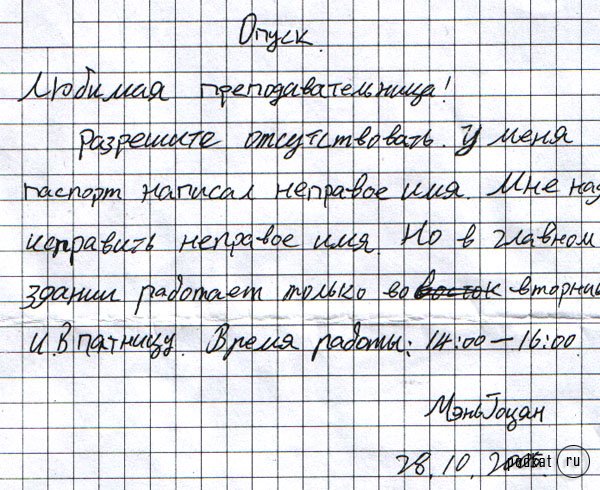 Опуск.
Любимая преподавательница!
Разрешите отсутствовать. У меня
паспорт написал неправое имя. Мне над
исправить неправое имя. Но в главном
здании работает только во вторни
и. В патницу. Время работы: 14:00 — 16:00
Мэнь Гоцан
28.10.
ru